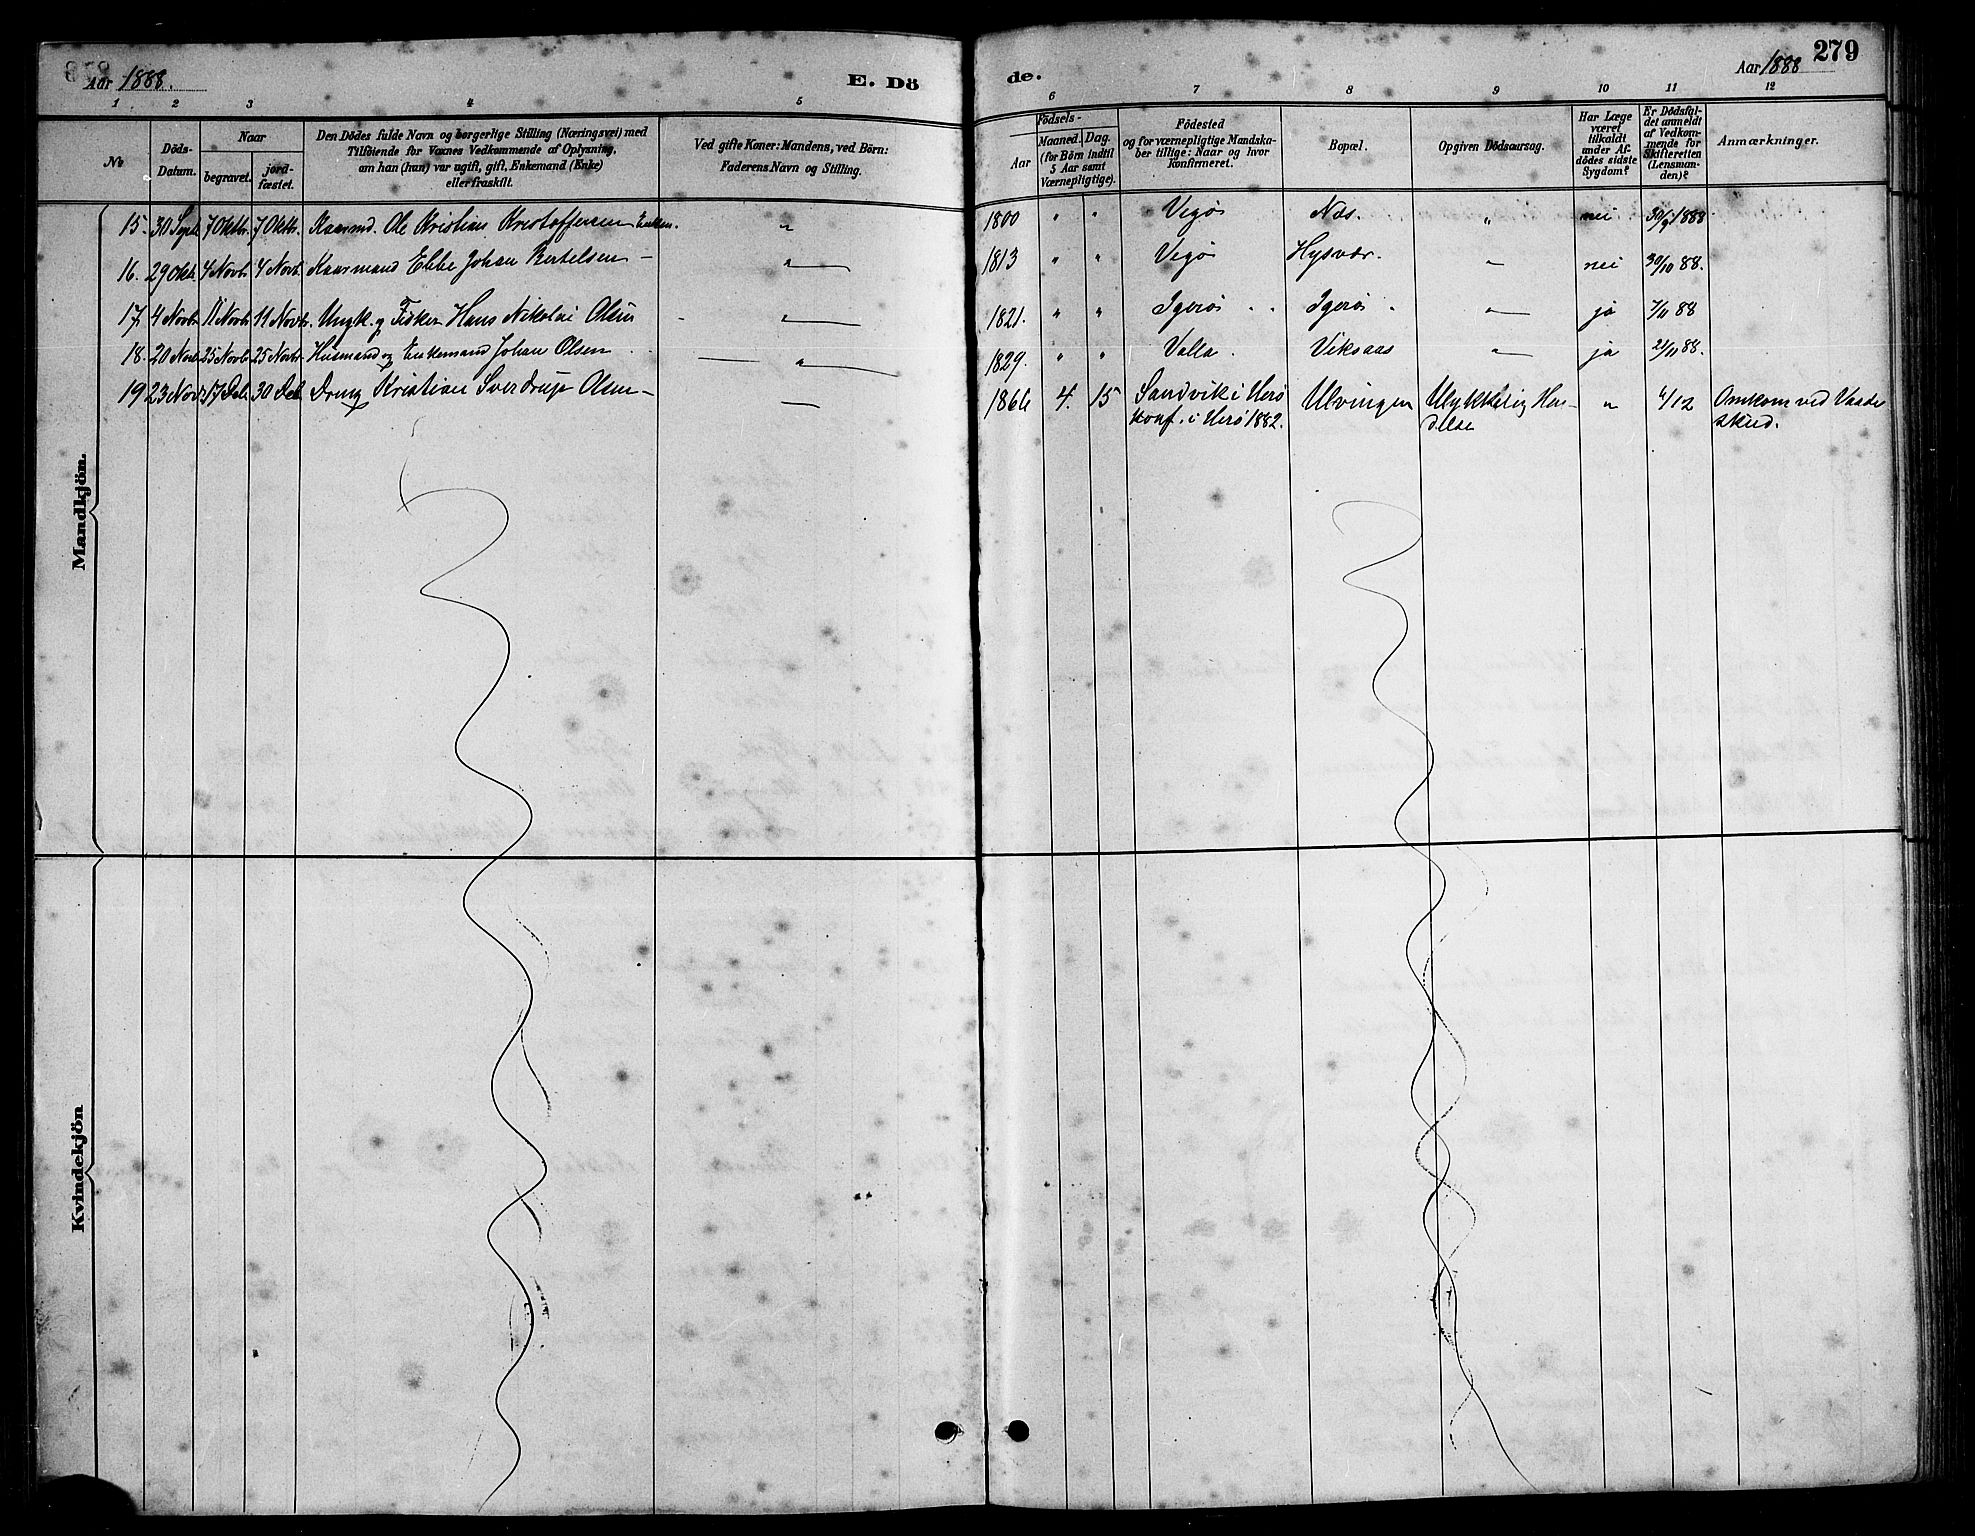 Aar 1888.
E. Dö
de.
Aar 1888
279
1 2 3 4 5 6 7 8 9 10 11 12
No
Döds-Datum.
Naar
begravet.
jord-fæstet.
Den Dödes fulde Navn og borgerlige Stilling (Næringsvei) med
Tilföiende for Voxnes Vedkommende af Oplysning,
om han (hun) var ugift, gift, Enkemand (Enke)
eller fraskilt.
Ved gifte Koner: Mandens, ved Börn:
Faderens Navn og Stilling.
Födsels-
Aar
Maaned. Dag.
(for Börn indtil
5 Aar samt
Værnepligtige).
Födested
og for værnepligtige Mandska-
ber tillige: Naar og hvor
konfirmeret.
Bopæl.
Opgiven Dödsaarsag.
Har Læge
været
tilkaldt
under Af-
dödes sidste
Sygdom?
Er Dödsfal-
det anmeldt
af Vedkom-
mende for
Skifteretten
(Lensman-
den)?
Anmærkninger.
Mandkjön.
15. 30 Sept. 7 Oktbr. 7 Oktbr. Kaarmd. Ole Kristian Kristoffersen Enkem. " 1800 " " Vegø Nes. " nei 30/9 1888
16. 29 Okt. 4 Novb. 4 Novb. Kaarmand Ebbe Johan Bertelsen — " 1813 " " Vegø Hysvær. " nei 30/10 88.
17. 4 Novb. 11 Novb. 11 Novb. Ungk. og Fisker Hans Nikolai Olsen " 1821. " " Igerø Igerø " ja 7/11 88
18. 20 Nov. 25 Novb. 25 Novb. Husmand og Enkemand Johan Olsen " 1829. " " Valla. Viksaas " ja 21/11 88.
19 23 Nov. 17 Deb. 30 Deb. Dreng Kristian Sverdrup Olsen — 1866 4. 15 Sandvik i Herø Ulvingen Ulykkelig Hen- " 4/12 Omkom ved Vaade
konf. i Herø 1882. delse skud.
Kvindekjön